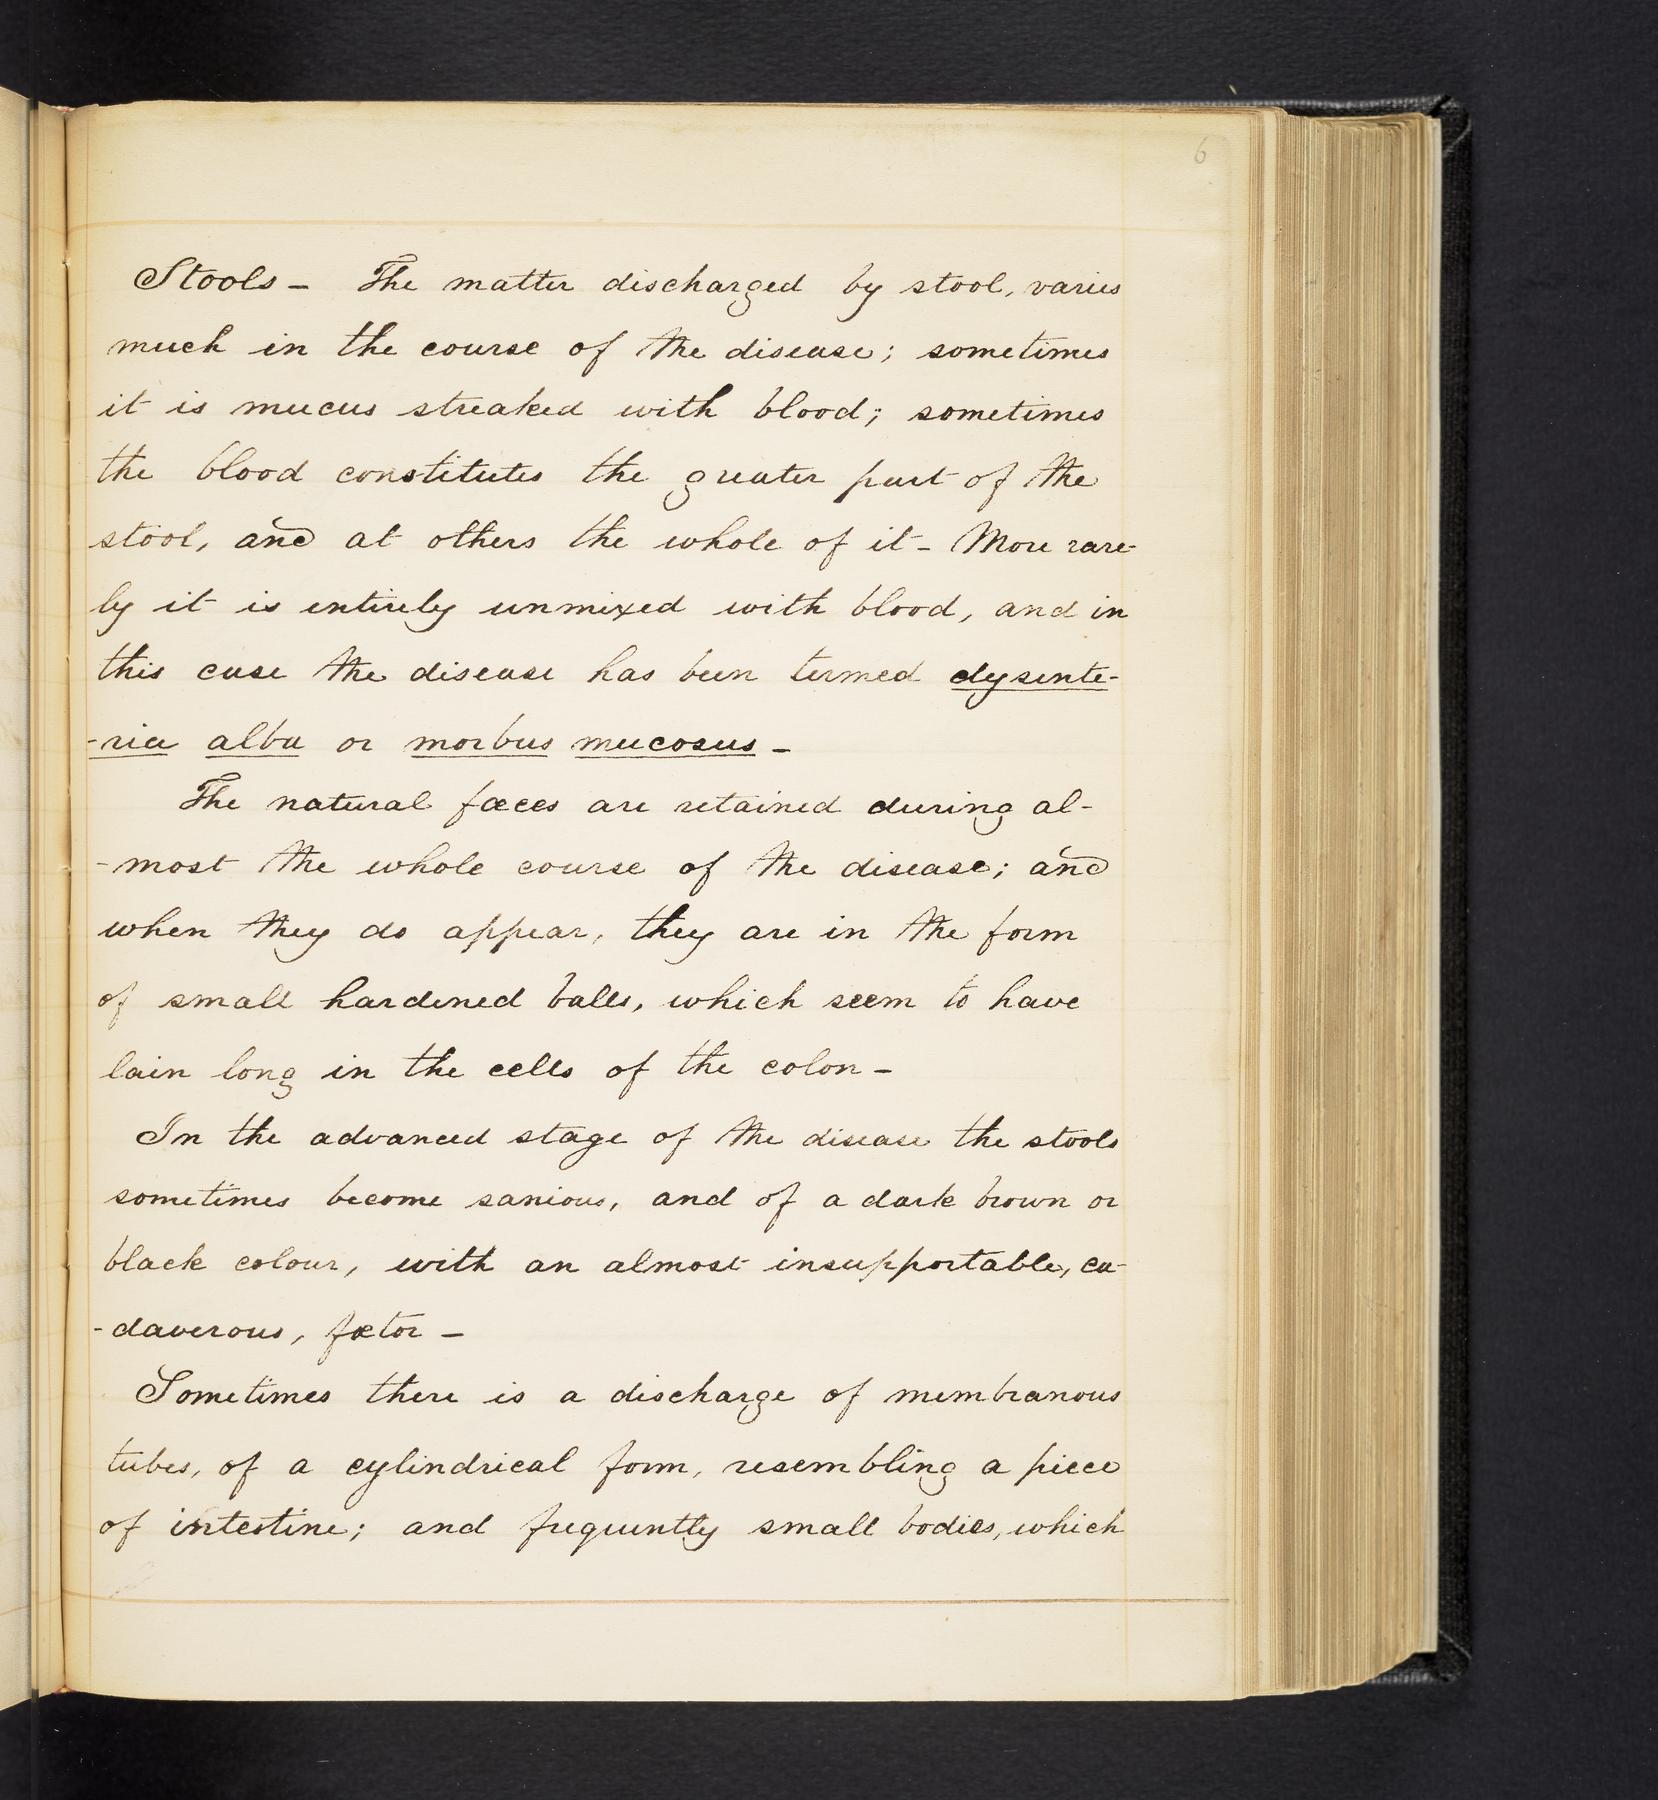 6
Stools – The matter discharged by stool, varies
much in the course of the disease; sometimes
it is mucus streaked with blood; sometimes
the blood constitutes the greater part of the
stool, and at others the whole of it – More rare-
ly it is entirely unmixed with blood, and in
this case the disease has been termed dysente-
-ria alba or morbus mucosus –
The natural fæces are retained during al-
-most the whole course of the disease; and
when they do appear, they are in the form
of small hardened balls, which seem to have
lain long in the cells of the colon –
In the advanced stage of the disease the stools
sometimes become sanious, and of a dark brown or
black colour, with an almost insupportable, ca-
-daverous, fœtor –
Sometimes there is a discharge of membranous
tubes, of a cylindrical form, resembling a piece
of intestine; and frequently small bodies, which